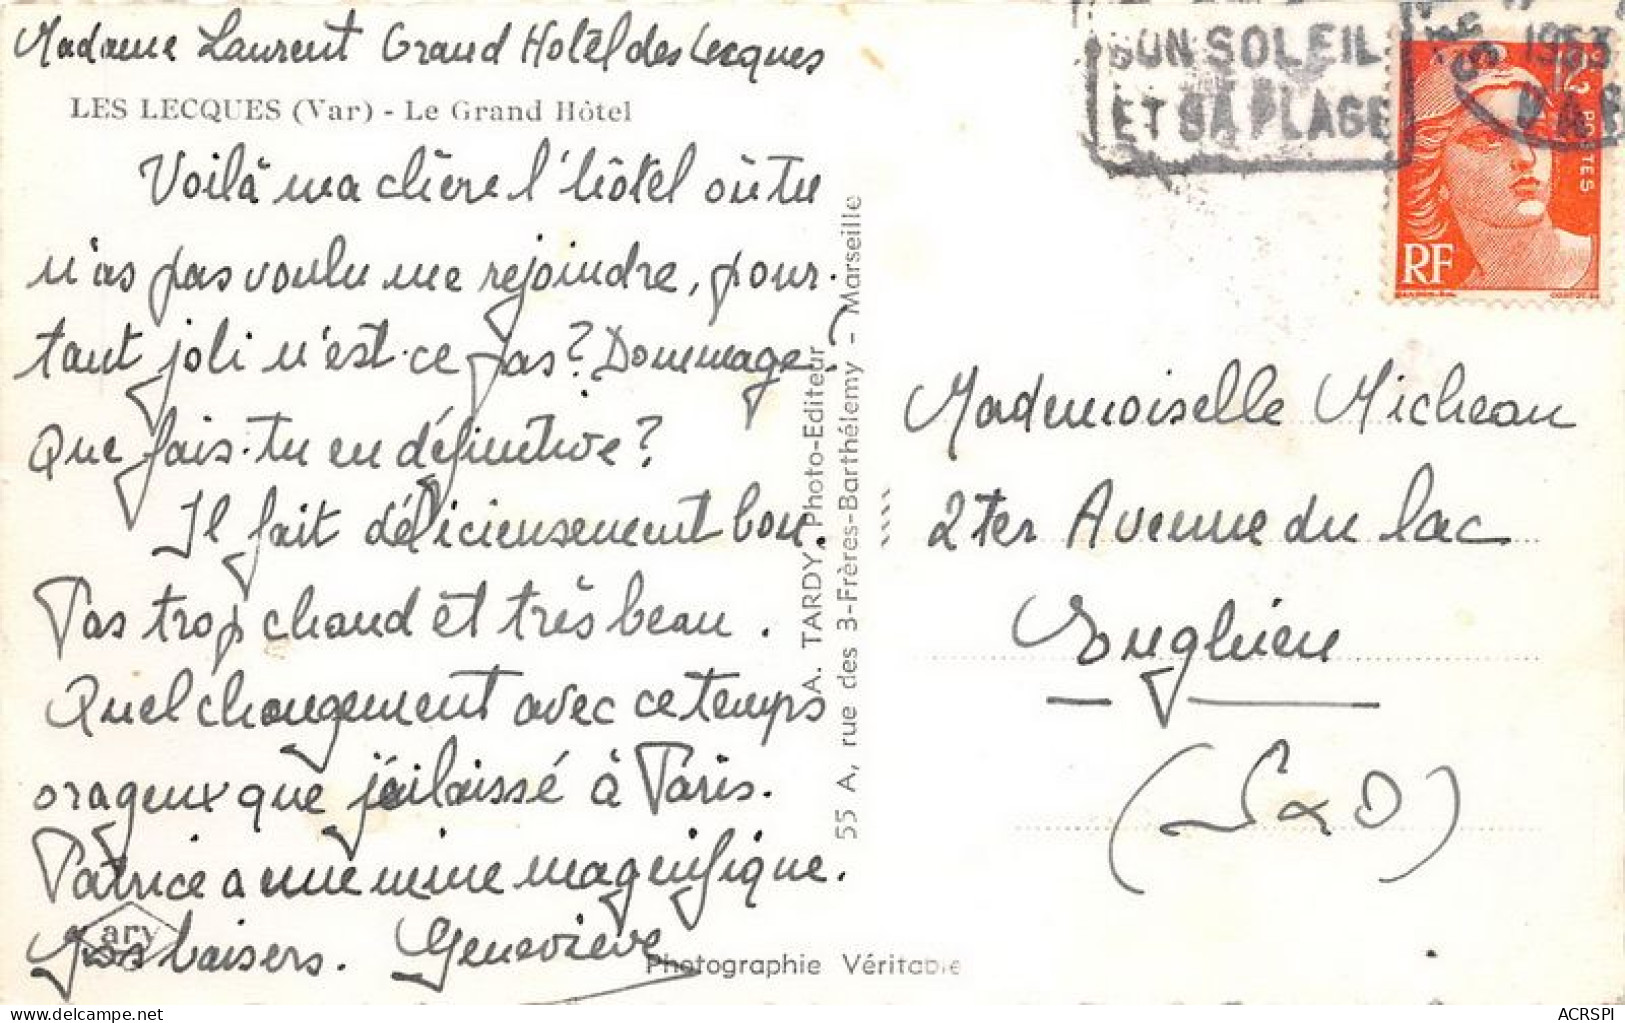 Madame Laurent Grand Hotel des Lecques
LES LECQUES (Var) - Le Grand Hôtel
Voilà ma chère l'hôtel où tu
n'as pas voulu me rejoindre, pour-
tant joli n'est-ce pas? Dommage!
Que fais-tu en définitive?
Il fait délicieusement bon.
Pas trop chaud et très beau.
Quel changement avec ce temps
orageux que j'ai laissé à Paris.
Patrice a une mine magnifique.
Gros baisers. Geneviève
ary
Photographie Véritable
A. TARDY, Photo-Editeur
55 A, rue des 3-Frères-Barthélemy - Marseille
SON SOLEIL
ET SA PLAGE
1953
VAR
12F
POSTES
RF
GANDON
Mademoiselle Micheau
2 ter Avenue du lac
Enghien
(S & O)
ACRSPI